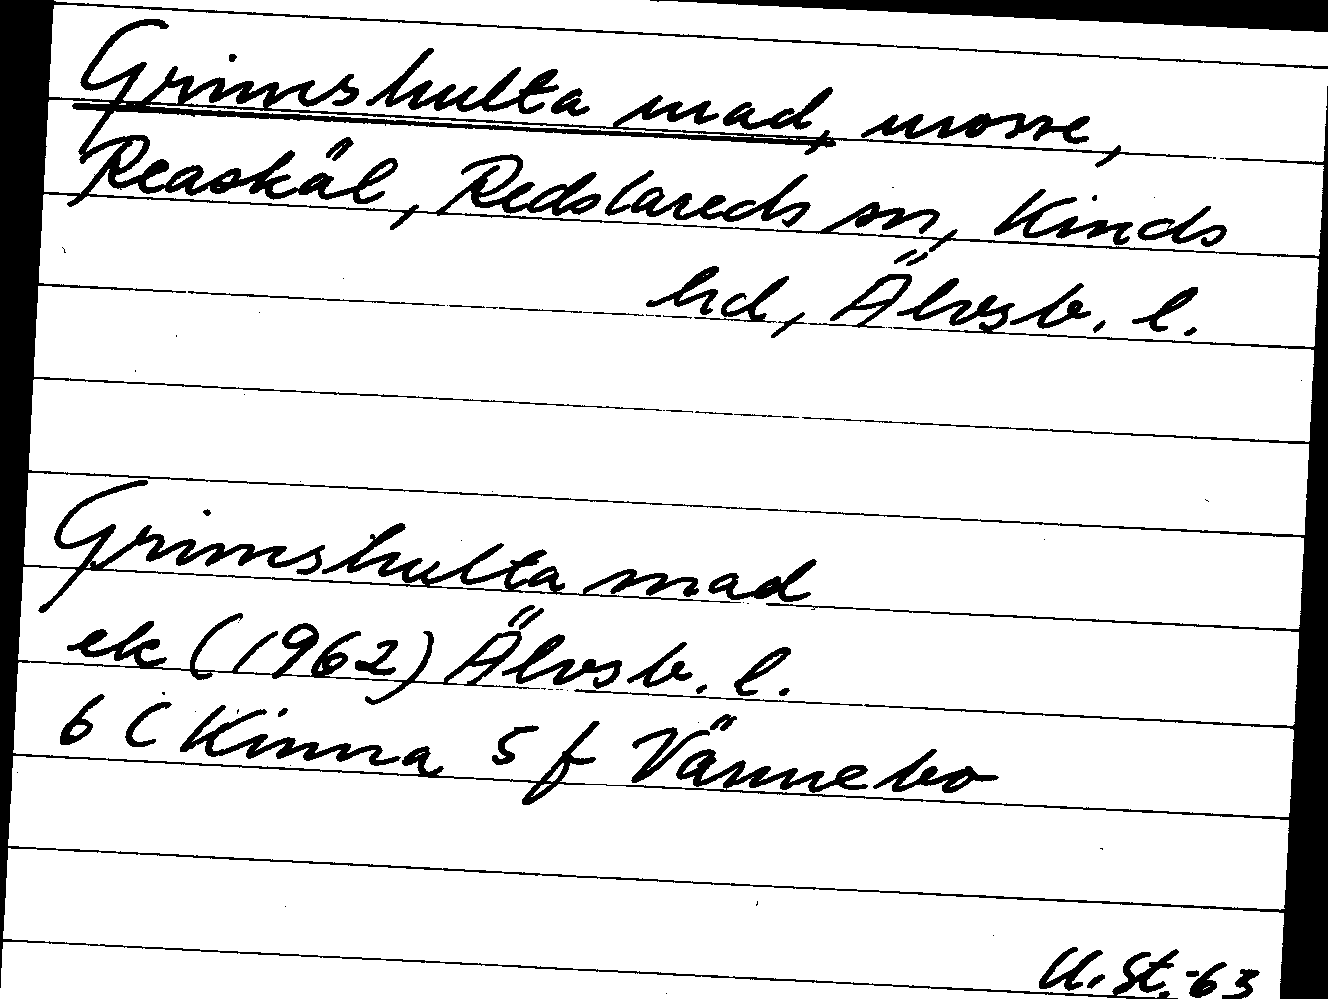 Grimshulta mad, mosse,
Reaskäl, Redslareds sn, Kinds
hd, Älvsb. l.
Grimshulta mad
ek (1962) Älvsb. l.
6 C Kinna 5 f Vännebo
U. St. -63